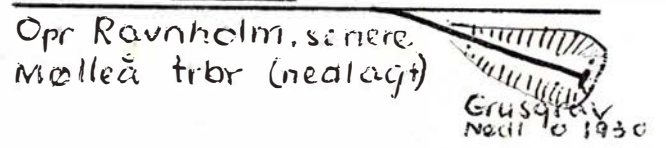 Opr Ravnholm, senere
Mølleå trbr (nedlagt)
Grusgrav
Nedl o 1930